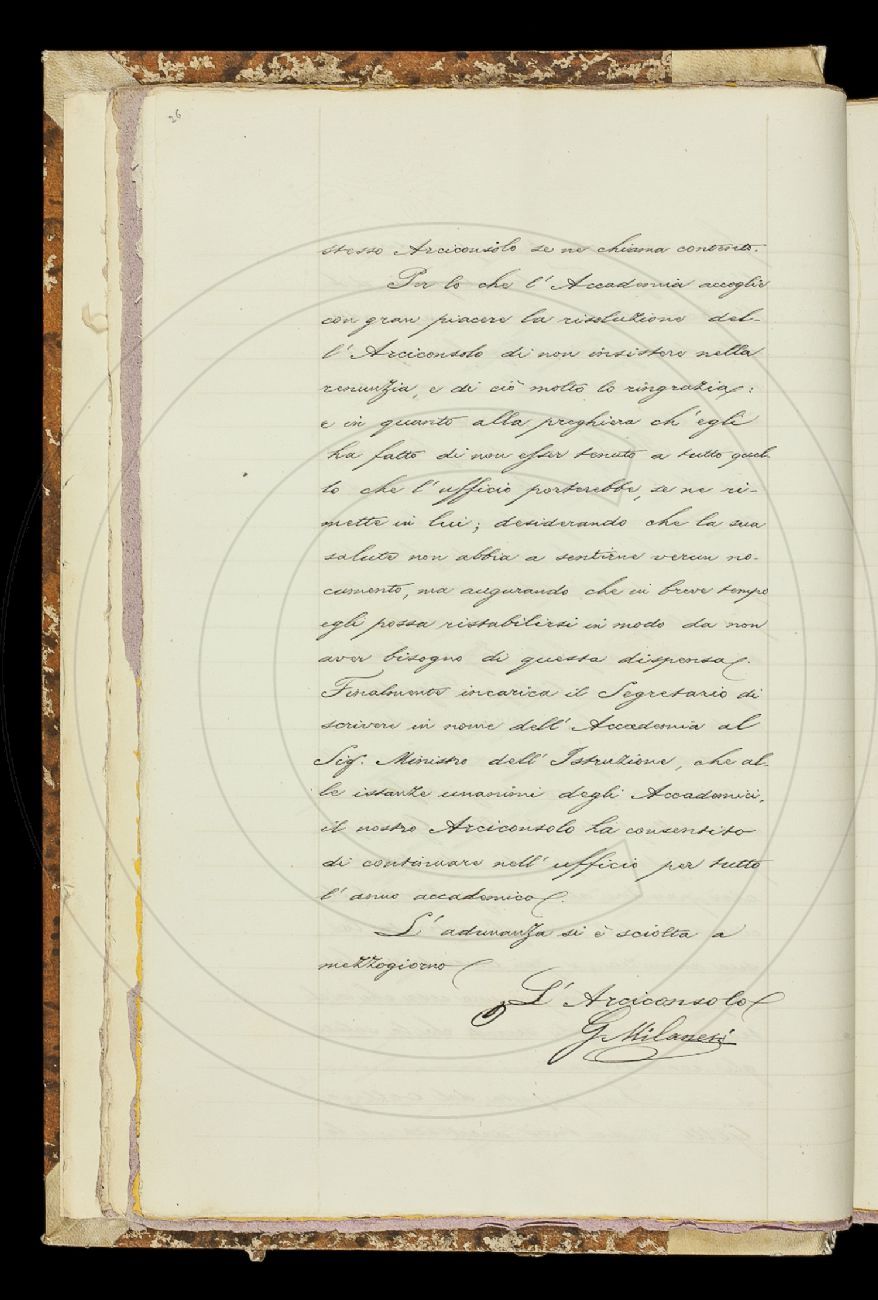 26
stesso Arciconsolo se ne chiama contento.
Per lo che l'Accademia accoglie
con gran piacere la risoluzione del-
l'Arciconsolo di non insistere nella
renunzia, e di ciò molto lo ringrazia:
e in quanto alla preghiera ch'egli
ha fatto di non esser tenuto a tutto quel-
lo che l'ufficio porterebbe, se ne ri-
mette in lui; desiderando che la sua
salute non abbia a sentirne verun no-
cumento, ma augurando che in breve tempo
egli possa ristabilirsi in modo da non
aver bisogno di questa dispensa.
Finalmente incarica il Segretario di
scrivere in nome dell'Accademia al
Sig. Ministro dell'Istruzione, che al-
le istanze unanimi degli Accademici,
il nostro Arciconsolo ha consentito
di continuare nell'ufficio per tutto
l'anno accademico.
L'adunanza si è sciolta a
mezzogiorno
L'Arciconsolo
G Milanesi